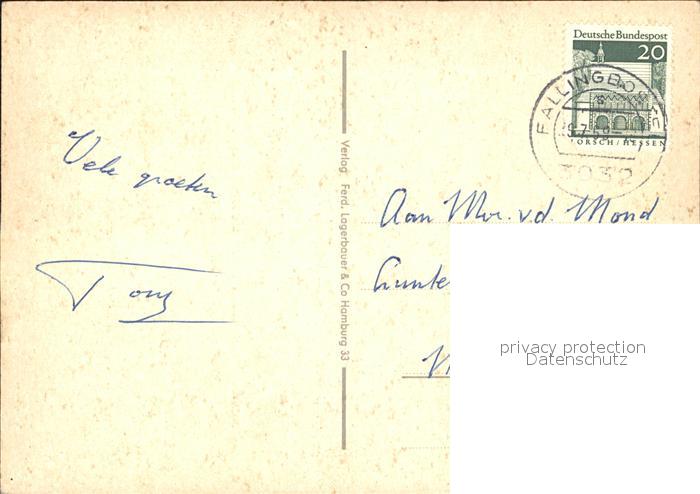 Vele groeten
Tony
Verlag Ferd. Lagerbauer & Co Hamburg 33
Deutsche Bundespost
20
LORSCH/HESSEN
FALLINGBOSTEL
3032
Aan Mvr. v.d. Mond
privacy protection
Datenschutz